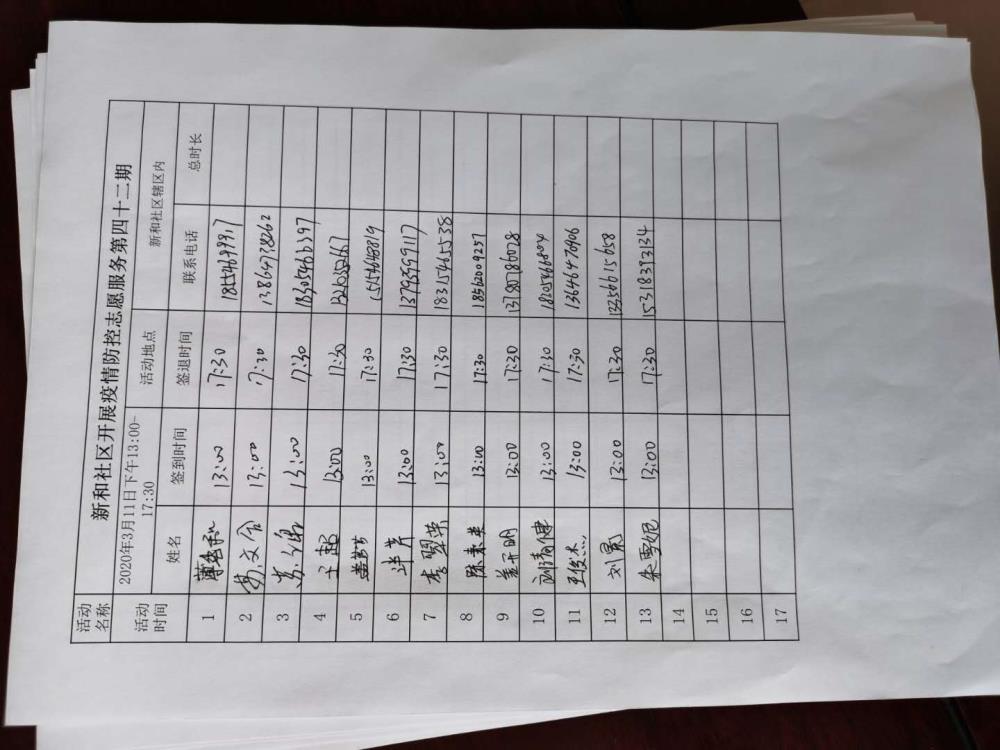 活动名称 新和社区开展疫情防控志愿服务第四十二期
活动时间 2020年3月11日下午13:00-17:30 活动地点 新和社区辖区内
姓名 签到时间 签退时间 联系电话 总时长
1 13:00 17:30
2 苏文会 13:00 17:30 13864738262
3 13:00 17:30 18305462397
4 王超 13:00 17:30
5 13:00 17:30
6 13:00 17:30
7 李翠荣 13:00 17:30 18315465538
8 陈素英 13:00 17:30 18562009257
9 盖开明 13:00 17:30 13780786028
10 刘清健 13:00 17:30 18205466804
11 王俊杰 13:00 17:30 13646470906
12 刘景 13:00 17:30 13356615658
13 朱雪妮 13:00 17:30 15318393134
14
15
16
17